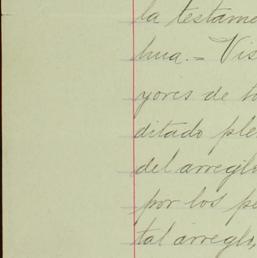 la testame
hua. = Vis
yores de to
ditado ple
del arreglo
por los pe
tal arreglo,